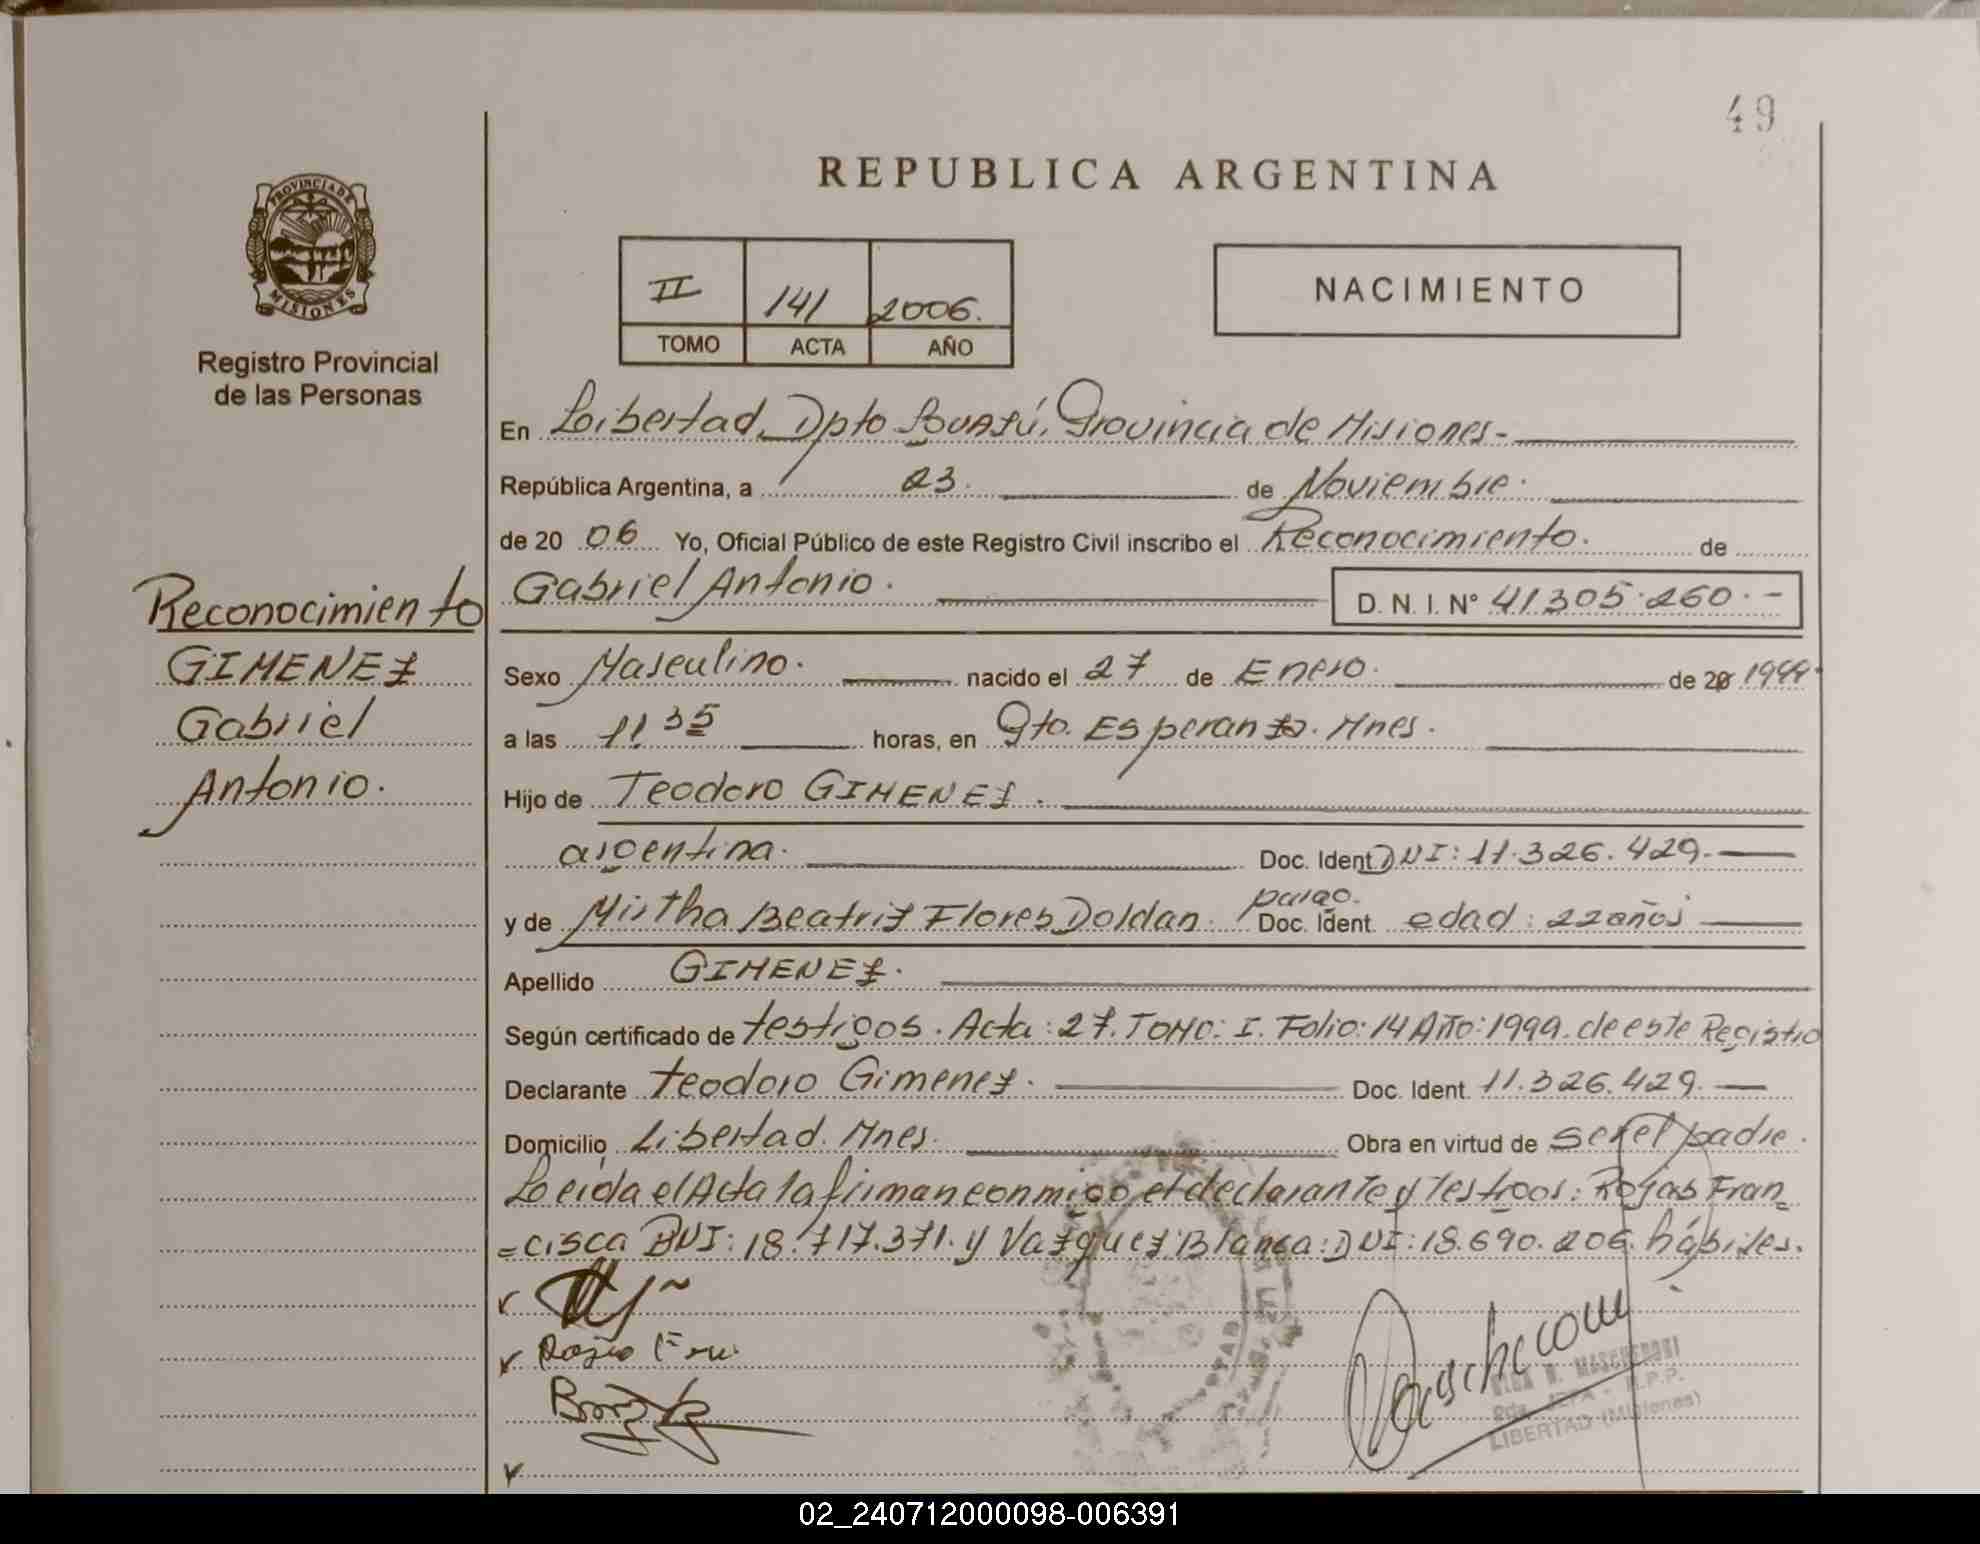 49
REPUBLICA ARGENTINA
PROVINCIA DE
MISIONES
Registro Provincial
de las Personas
II 141 2006.
TOMO ACTA AÑO
NACIMIENTO
En Libertad, Dpto Iguazú, Provincia de Misiones-
República Argentina, a 23. de Noviembre.
de 20 06 Yo, Oficial Público de este Registro Civil inscribo el Reconocimiento. de
Gabriel Antonio. D. N. I. Nº 41.305.260.-
Reconocimiento
GIMENEZ
Gabriel
Antonio.
Sexo Masculino. nacido el 27 de Enero. de 20 1999.
a las 11 35 horas, en Pto. Esperanza. Mnes.
Hijo de Teodoro GIMENEZ.
argentina. Doc. Ident. DNI: 11.326.429.-
parag.
y de Mirtha Beatriz Flores Doldan. Doc. Ident. edad: 22 años
Apellido GIMENEZ.
Según certificado de testigos. Acta: 27. Tomo: I. Folio: 14 Año: 1999. de este Registro
Declarante Teodoro Gimenez. Doc. Ident. 11.326.429.
Domicilio Libertad. Mnes. Obra en virtud de ser el padre.
Leida el Acta la firman conmigo, el declarante y Testigos: Rojas Fran=
=cisca DNI: 18.717.371. y Vazquez Blanca: DNI: 18.690.206. hábiles.
MASCHERONI
2da. JEFA - R.P.P.
LIBERTAD (Misiones)
02_240712000098-006391